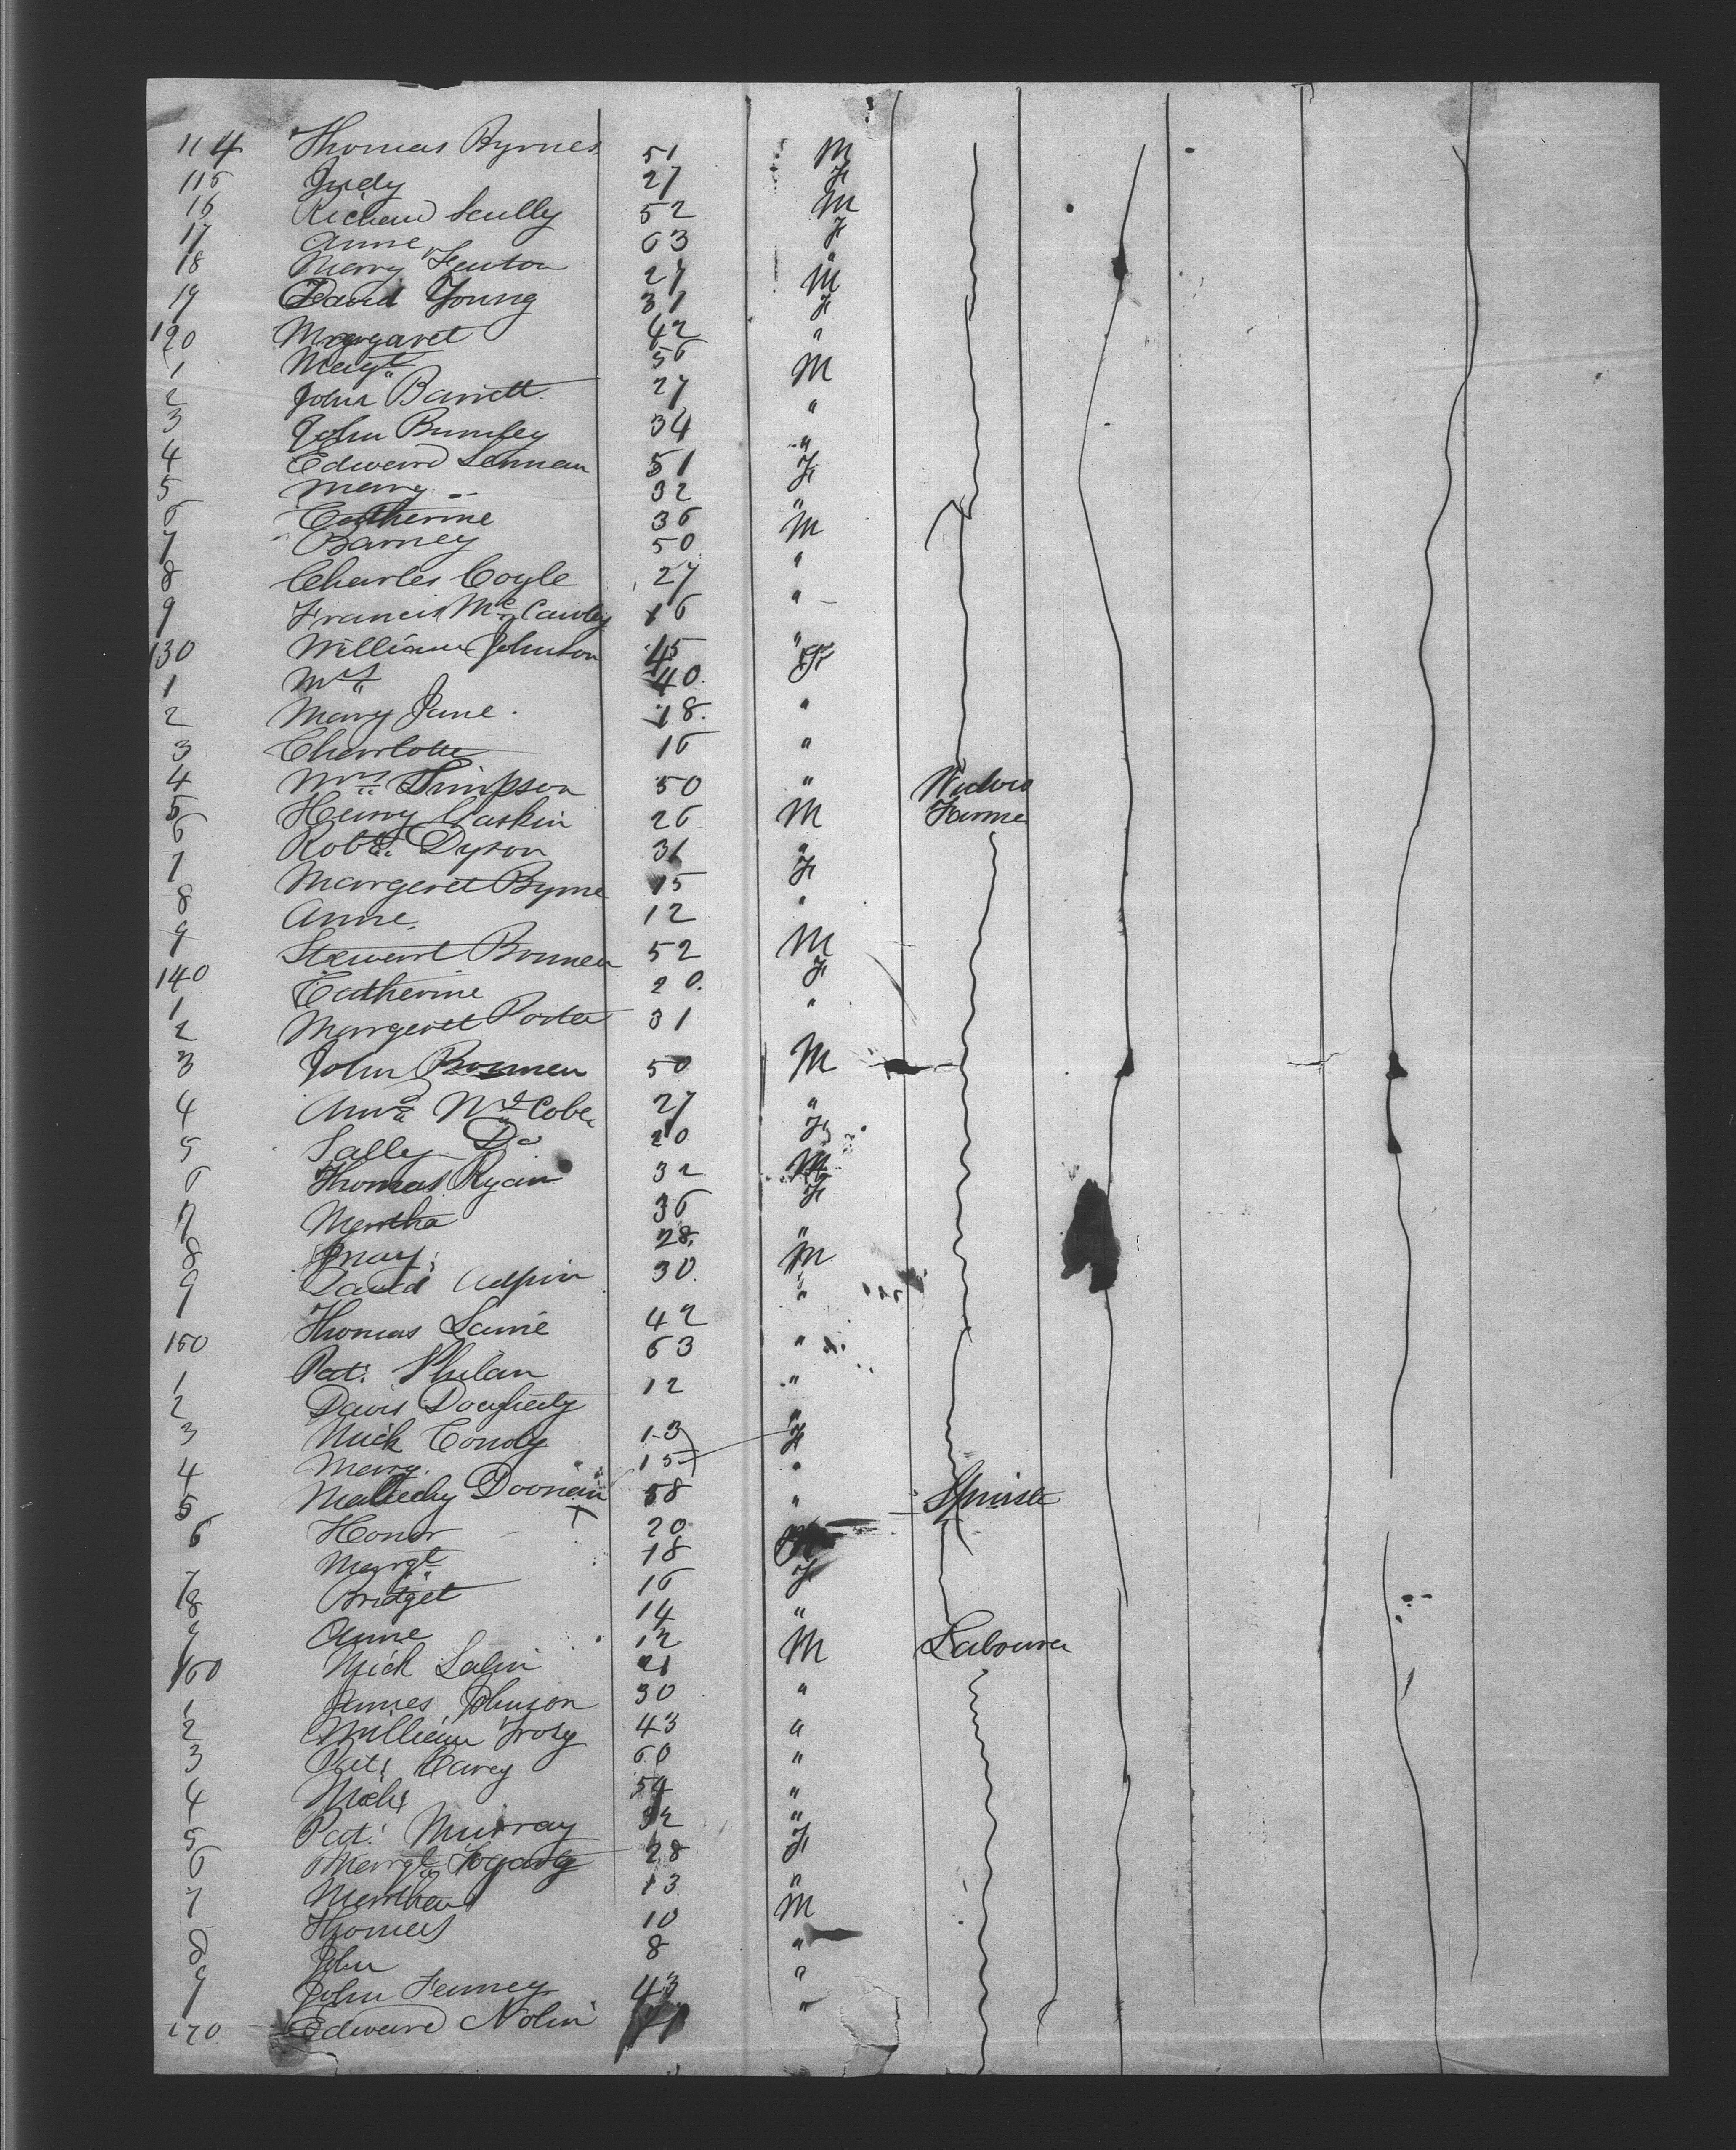 114 Thomas Byrnes 51 M
115 Judy 27 F
16 Richard Scully 52 M
17 Anne 63 F
18 Mary Fenton 27 "
19 David Young 31 M
120 Margaret 42 F
1 Margt 56 "
2 John Barrett 27 M
3 John Bumley 34 "
4 Edward Lennan 51 "
5 Mary " 32 F
6 Catherine 36 "
7 Barney 50 M
8 Charles Coyle 27 "
9 Francis McCawley 16 "
130 William Johnson 45 "
1 Mrs 40 F
2 Mary Jane 18 "
3 Charlotte 16 "
4 Mrs Simpson 50 " Widow
5 Henry Gaskin 26 M Farmer
6 Robt. Dyson 31 "
7 Margeret Byrne 15 F
8 Anne 12 "
9 Stewart Bonner 52 M
140 Catherine 20 F
1 Margeret Porter 31 "
3 John Bonner 50 M
4 McCobe 27 "
5 Sally Do 20 F
6 Thomas Ryan 32 M
7 Martha 36 F
8 Mary 28 "
9 David Alpin 30 M
150 Thomas Lamie 42 "
1 Pat. Philan 63 "
2 Davis Dougherty 12 "
3 Mick Condy 13 "
4 Mary 15 F
5 Malachy Doonan 58 "
6 Honor 20 " Spinster
7 Margt 18
8 Bridget 16 F
9 Anne 14 "
160 Mick Lalin 21 M Labourer
1 James Johnson 30 "
2 William Troly 43 "
3 Pat. Carey 60 "
4 Mich. 54 "
5 Pat. Murray 32 "
6 Margt Fogarty 28 F
7 Martha 13 "
Thomas 10 M
8 John 8 "
9 John Fenney 43 "
170 Edward Nolin "